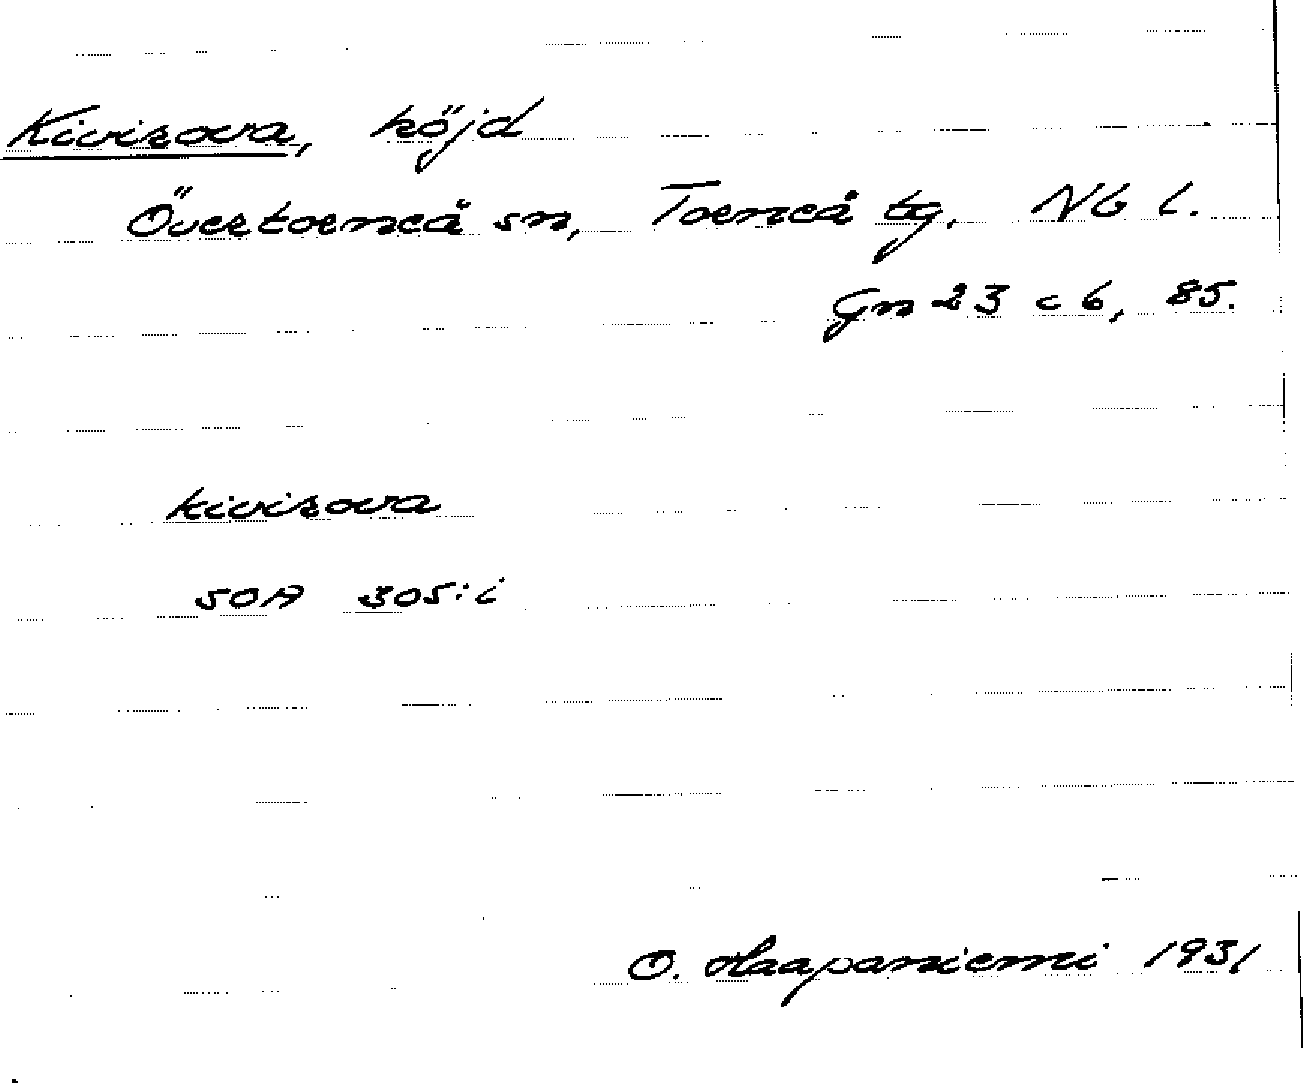 Kivirova, höjd
Övertorneå sn, Torneå tg. Nb l.
Gn 23 c 6, 85.
kivirova
SOA 305:i
O. Haapaniemi 1931